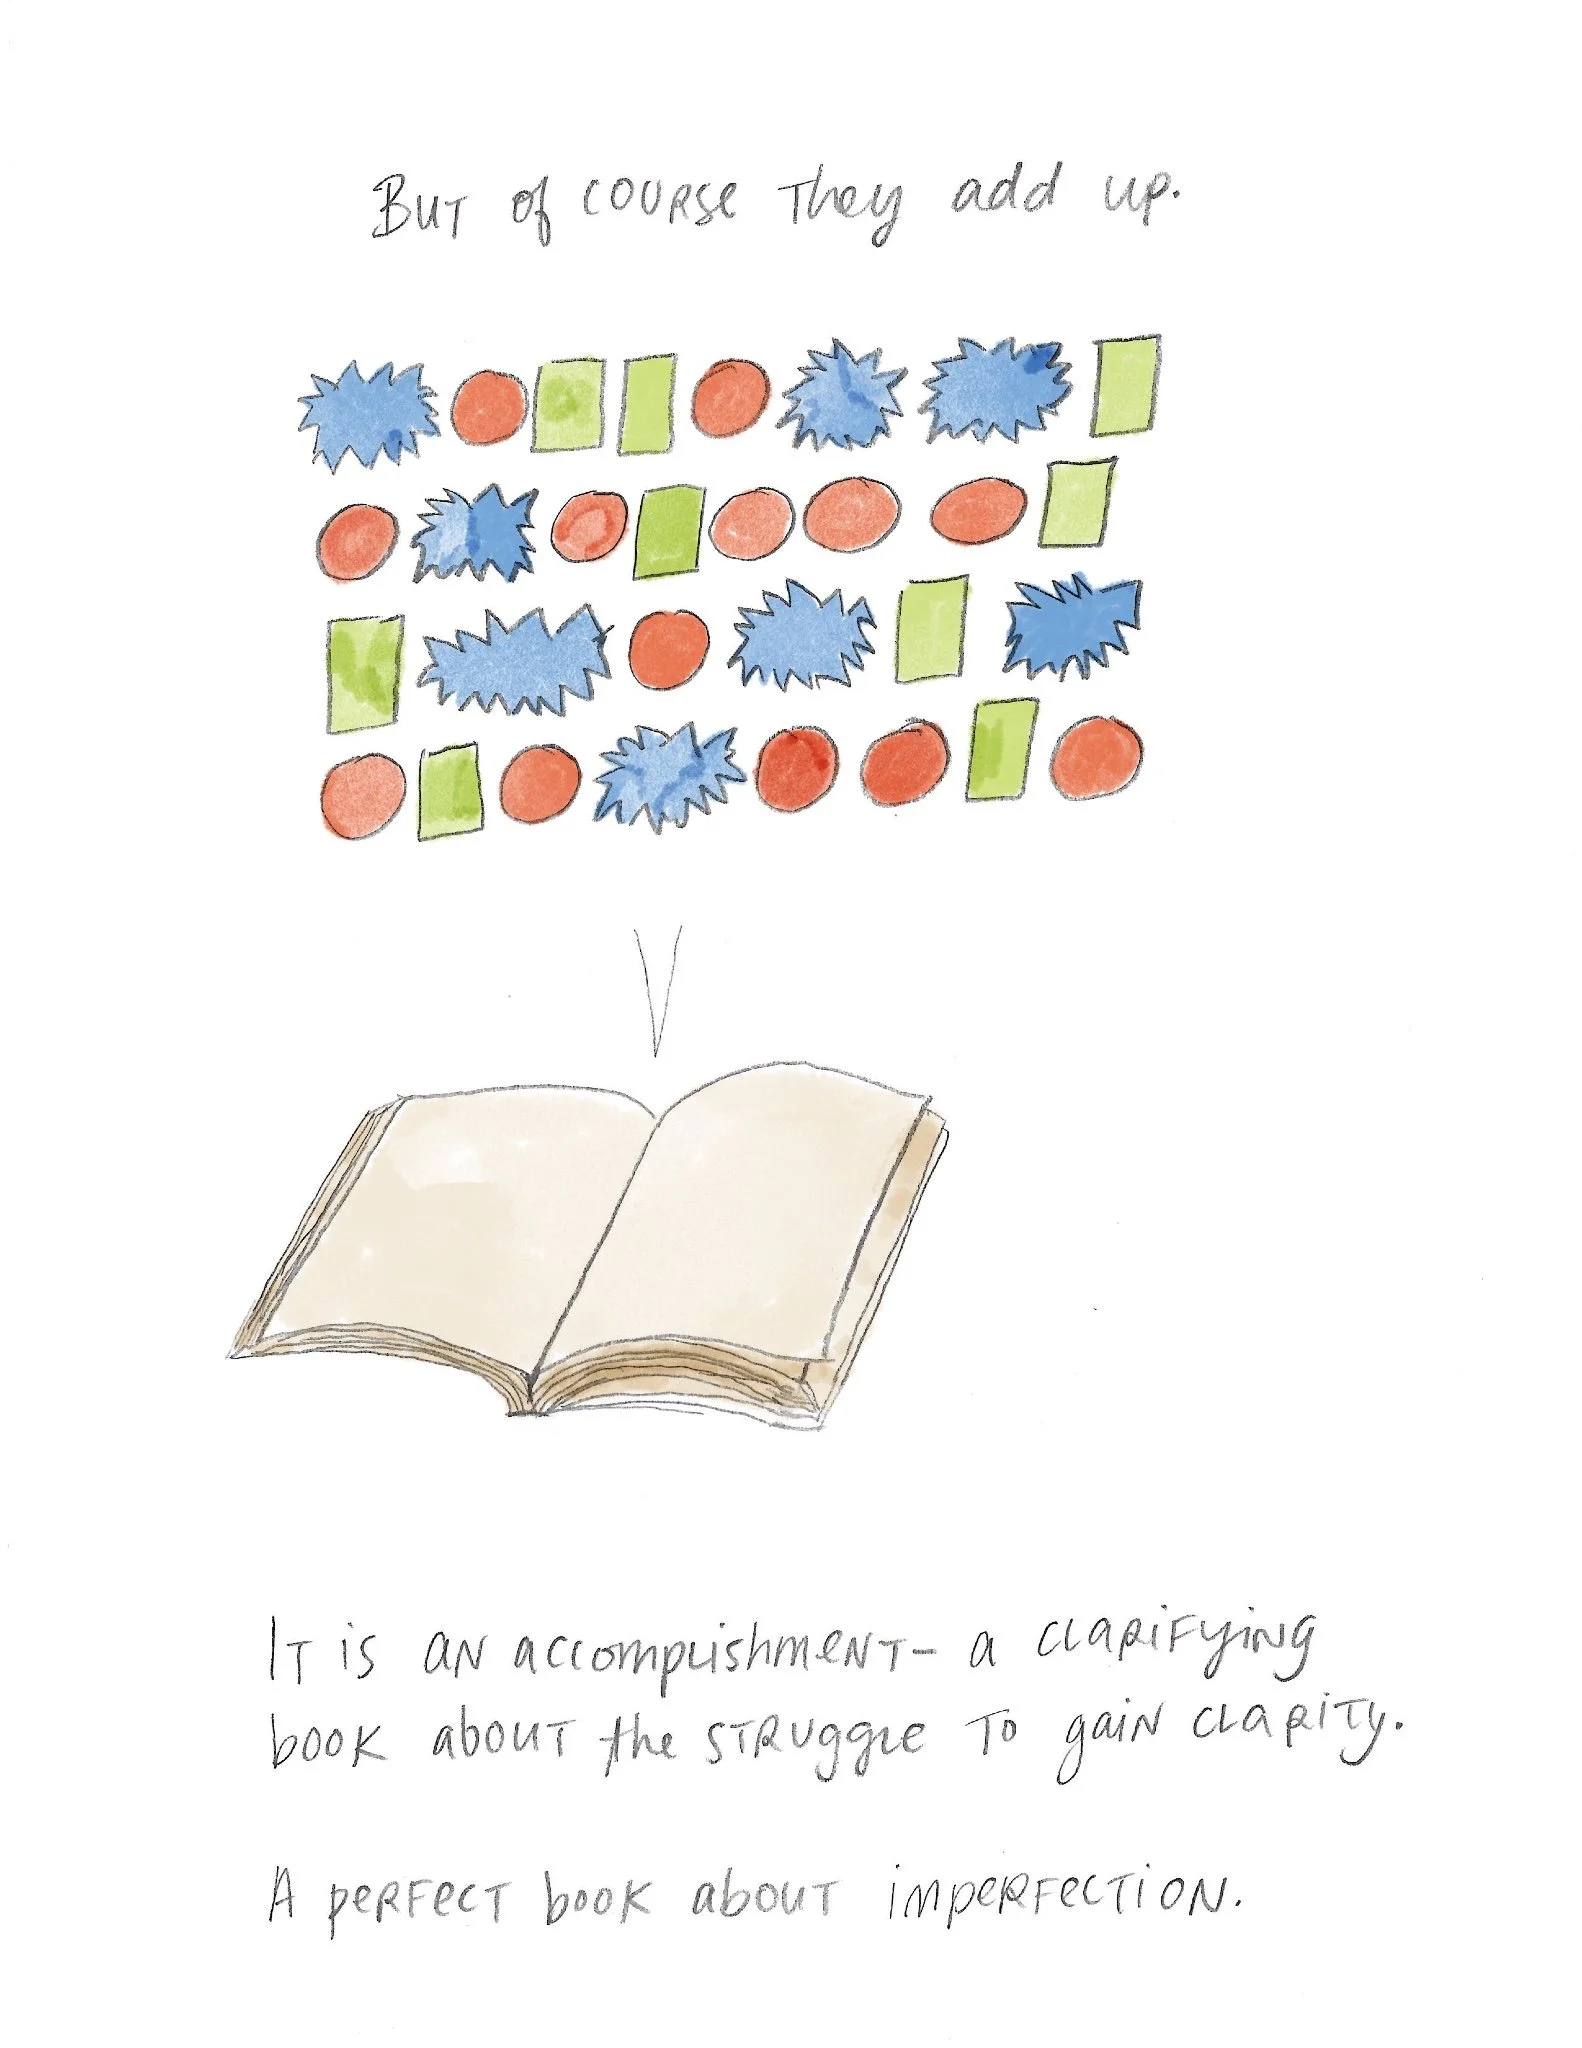 But of course they add up.
It is an accomplishment – a clarifying
book about the struggle to gain clarity.
A perfect book about imperfection.